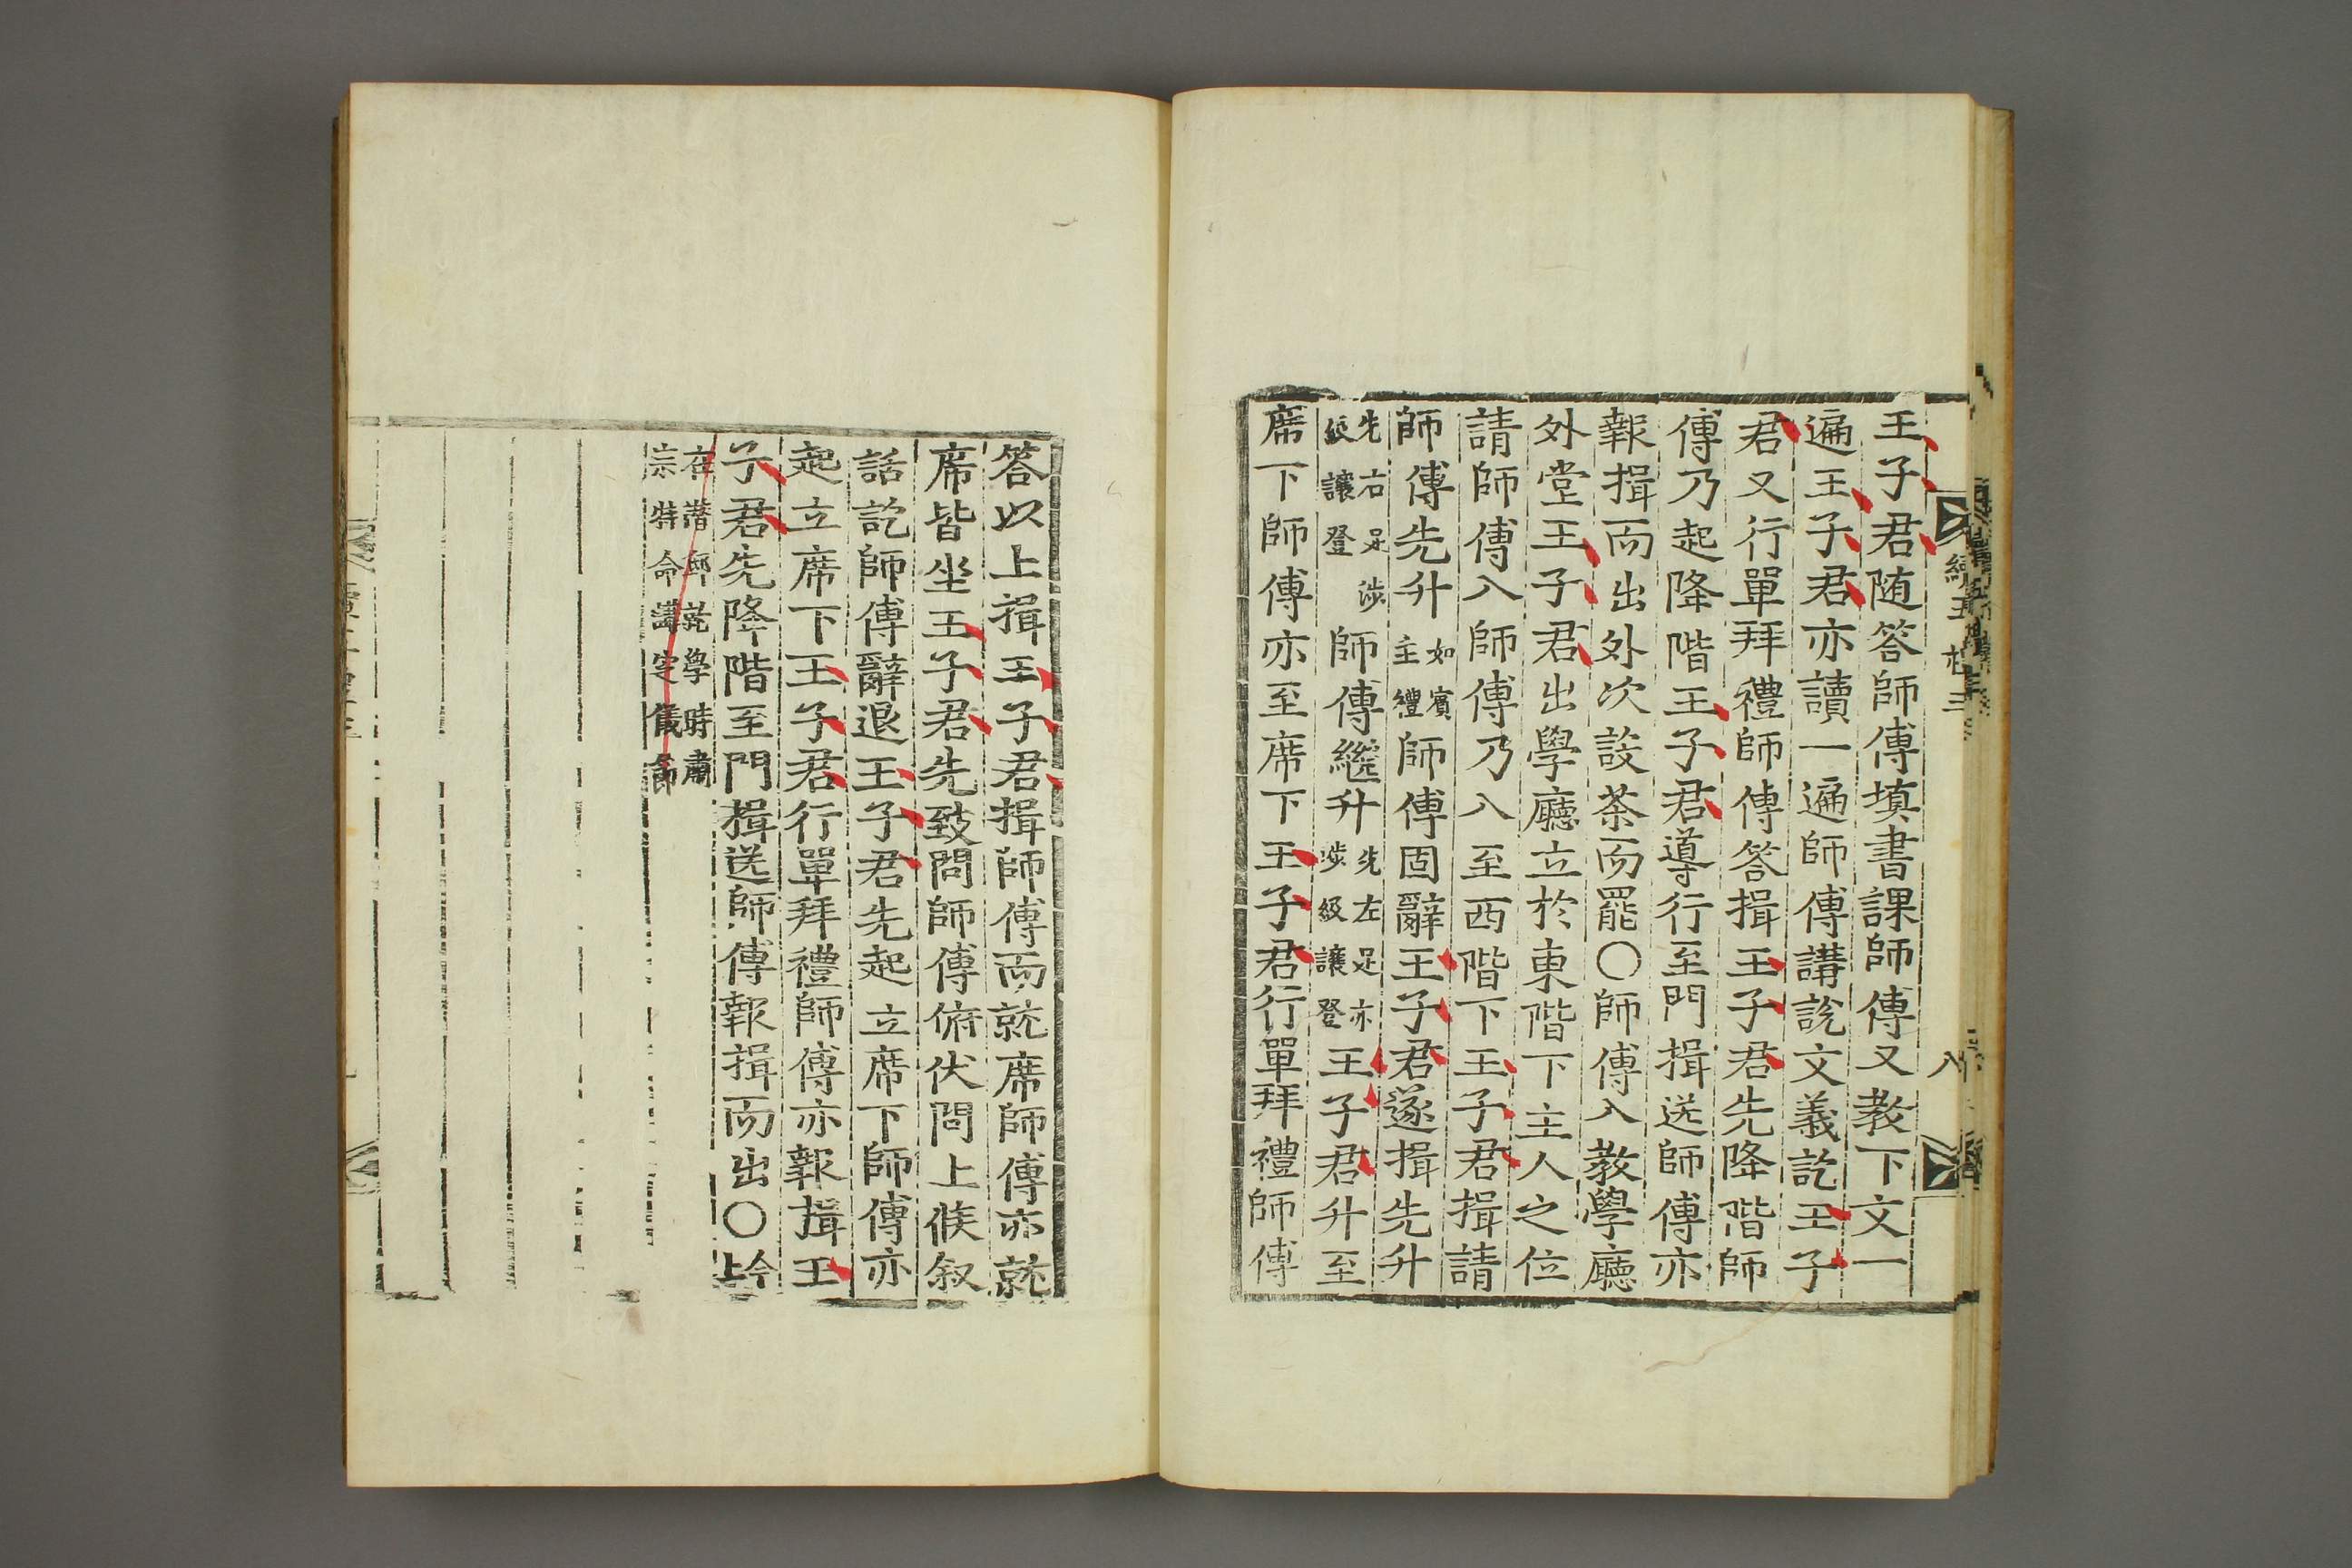 王子君随答師傅填書課師傅又教下文一
遍王子君亦讀一遍師傅講說文義訖王子
君又行單拜禮師傅答揖王子君先降階師
傅乃起降階王子君導行至門揖送師傅亦
報揖而出外次設茶而罷○師傅入教學廳
外堂王子君出學廳立於東階下主人之位
請師傅入師傅乃入至西階下王子君揖請
師傅先升如賓主禮師傅固辭王子君遂揖先升
先右足涉級讓登師傅繼升先左足亦涉級讓登王子君升至
席下師傅亦至席下王子君行單拜禮師傅
答以上揖王子君揖師傅而就席師傅亦就
席皆坐王子君先致問師傅俯伏問上候叙
話訖師傅辭退王子君先起立席下師傅亦
起立席下王子君行單拜禮師傅亦報揖王
子君先降階至門揖送師傅報揖而出○今上
在潛邸就學時肅宗特命講定儀節